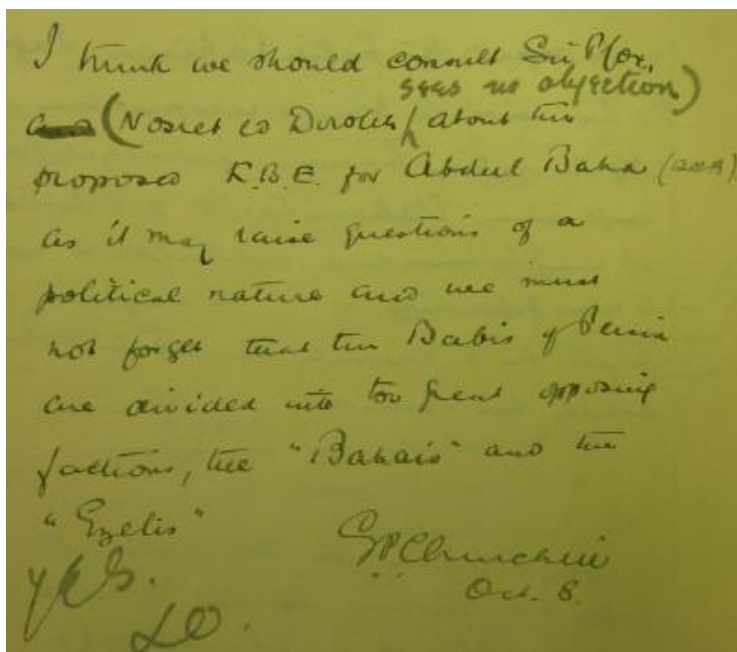 I think we should consult Sir P Cox,
sees no objection)
(Nosret ed Dowleh) about the
proposed K.B.E. for Abdul Baha
as it may raise questions of a
political nature and we must
not forget that the Babis of Persia
are divided into two great opposing
factions, the "Bahais" and the
"Ezelis"
GPChurchill
Oct. 8.
yes.
LO.